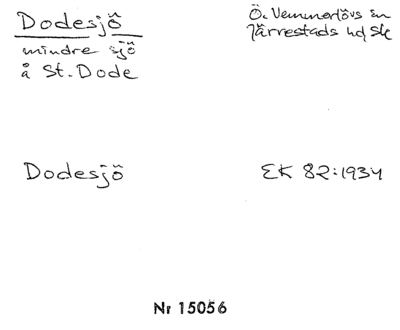 Dodesjö
mindre sjö
å St. Dode
Ö. Vemmerlövs sn
Järrestads hd Sk
Dodesjö
EK 82:1934
Nr 15056